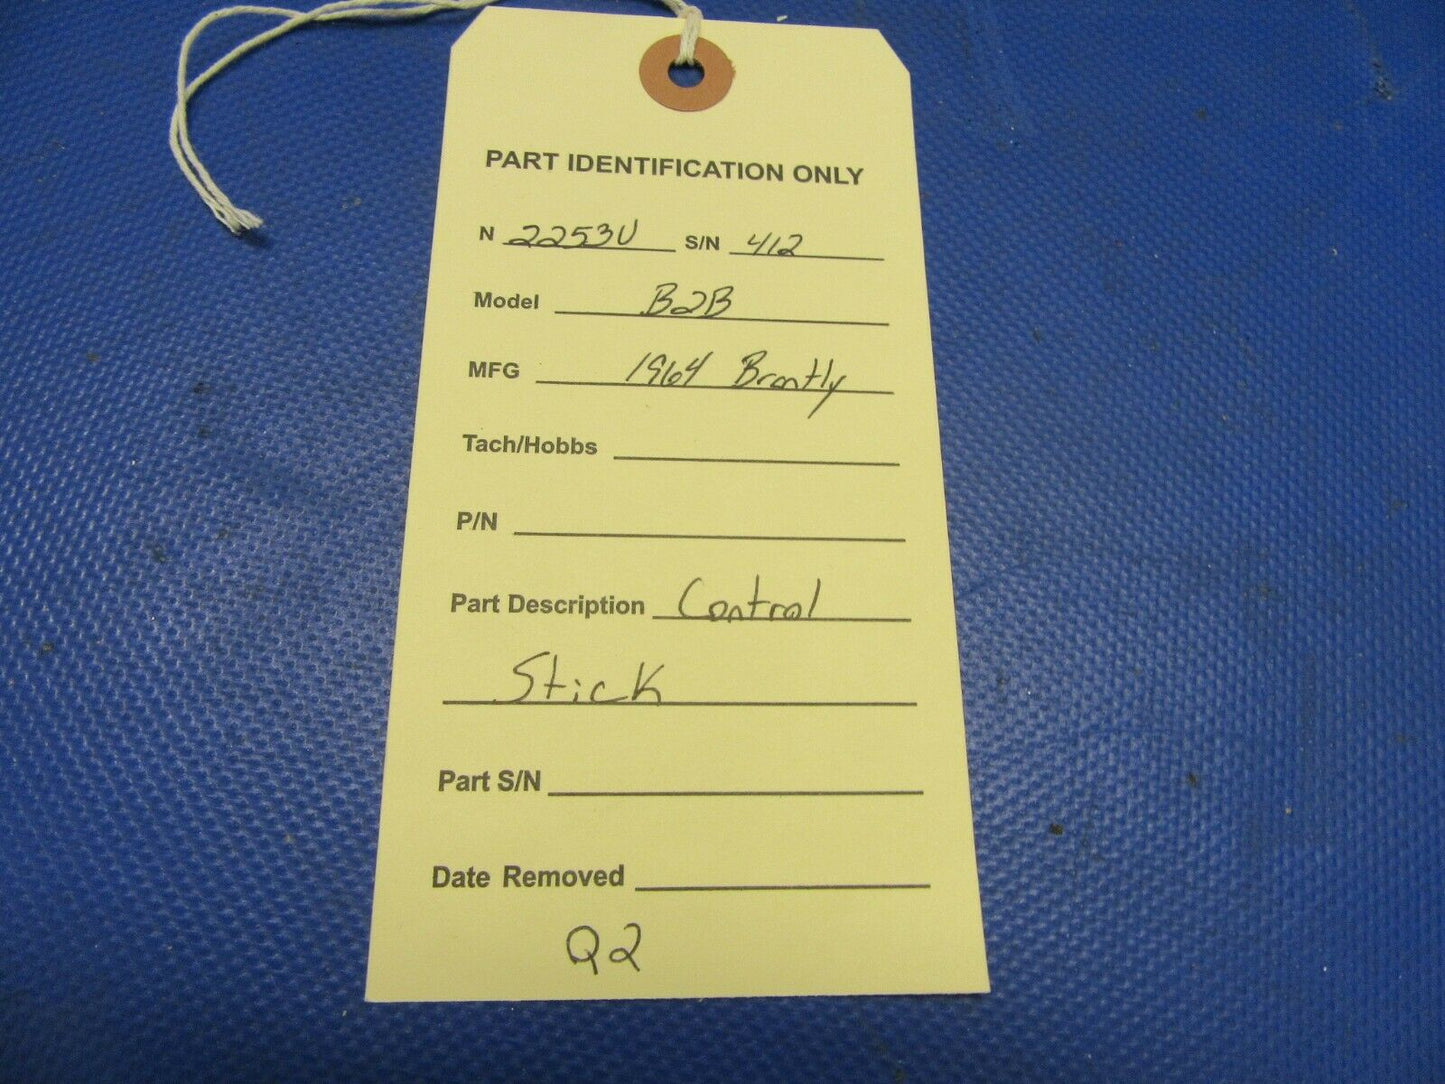 PART IDENTIFICATION ONLY
N 2253U S/N 412
Model B2B
MFG 1964 Brantly
Tach/Hobbs
P/N
Part Description Control
Stick
Part S/N
Date Removed
Q2